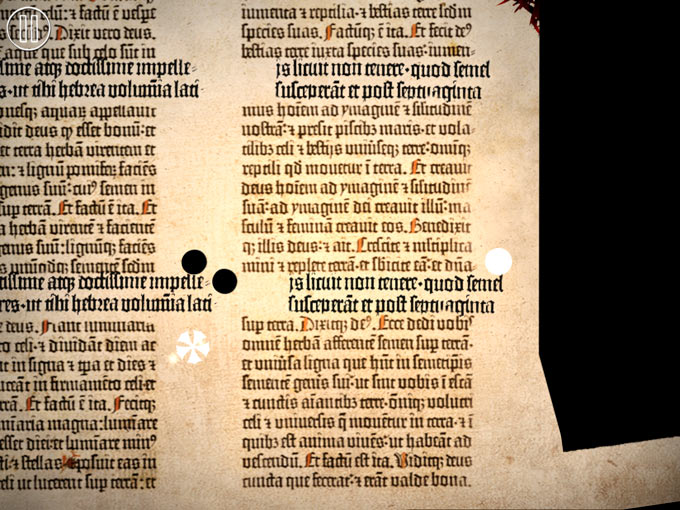 factū ē vespe
Dixit vero deus.
aque que sub celo sūt in
sime atqz doctissime impelle=
ut tibi hebrea volumina lati
aquaꝝ appellauit
deus ꝙ esset bonū: et
et terra herbā virentem et
lignū pomiferū faciēs
genus suū: cuiꝰ semen in
sup terrā. Et factū ē ita. Et
herbā virentē et facientē
genus suū: lignūqz faciēs
semente sedm
tissime atqz doctissime impelle=
res-ut tibi hebrea volumina lati
deus. Fiant luminaria
celi: et diuidāt diem ac
in signa et tpa et dies et
luceāt in firmamēto celi: et
terrā. Et factū ē ita. Fecitqz
luminaria magna: luminare
esset diei: et luminare minꝰ
et stellas et posuit eas in
celi ut lucerent sup terrā: et
iumenta et reptilia et bestias terre sedm
species suas. Factūqz ē ita. Et fecit deꝰ
bestias terre iuxta species suas: iumen=
is licuit non tenere. quod semel
susceperāt et post septuaginta
mus hoīem ad ymaginē et silitudinē
nostrā: et presit piscibz maris. et vola=
tilibz celi et bestijs vniuseqz terre: omīqz
reptili qd mouetur ī terra. Et creauit
deus hoīem ad ymaginē et silitudinē
suā: ad ymaginē dei creauit illū: ma=
sculū et feminā creauit eos. Benedixit
qz illis deus: et ait. Crescite et mltiplica=
mini et replete terrā. et sbicite eā: et dūa=
is licuit non tenere quod semel
susceperāt et post septuaginta
sup terra. Dixitqz deꝰ. Ecce dedi vobis
omnē herbā afferentē semen sup terrā.
et vniūsa ligna que hūt in semetipis
sementē genis sui: ut sint vobis ī escā
et cunctis aīantibz terre. oīqz volucri
celi et vniuersis q̄ mouētur in terra. et ī
quibz est anima viuēs: ut habeāt ad
vescendū. Et factū est ita. Viditqz deus
cuncta que fecerat: et erāt valde bona.